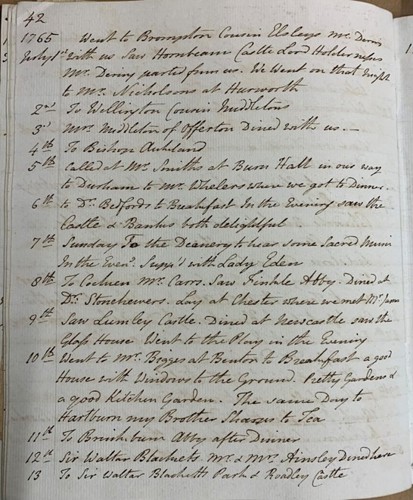 42
1765 Went to Brompton Cousin Elsleys Mr. Dering
July 1st with us Saw Hornbeam Castle Lord Holderness
Mr. Dering parted from us. We Went on that Night
to Mr. Nicholsons at Hurworth
2nd To Wellington Cousin Middletons
3d Mrs. Middleton of Offerton Dined with us.
4th To Bishop Aukeland
5th Called at Mr. Smiths at Burn Hall in our way
to Durham to Mr. Whelers where we got to Dinner
6th to Dr. Bedfords to Breakfast In the Evening saw the
Castle & Bankes both delightful
7th Sunday To the Deanery to hear some Sacred Music
In the Eveng. Supp'd with Lady Eden
8th To Cocken Mr. Carrs. Saw Finkle Abby. Dined at
Dr. Stonehewers. Lay at Chester where we met Mr.
9th Saw Lumley Castle. Dined at Newcastle saw the
Glass House Went to the Play in the Evening
10th Went to Mr. Bigges at Benton to Breakfast a good
House with Windows to the Ground. Pretty Gardens &
a good Kitchen Garden. The same Day to
Hartburn my Brother Sharps to Tea
11th To Brinkburn Abby after Dinner
12th Sir Walter Blacketts Mr. & Mrs. Ainsley Dined here
13 To Sir Walter Blacketts Park & Roadley Castle